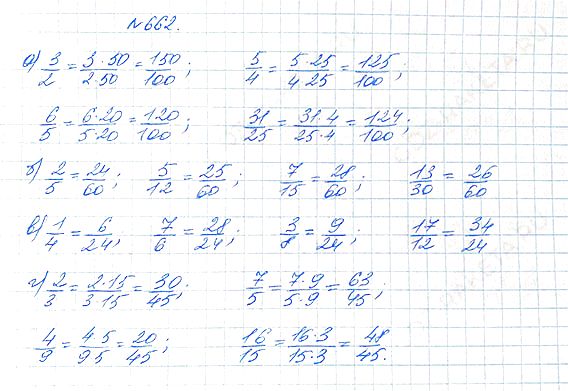 №662.
а) 3/2 = 3·50/2·50 = 150/100; 5/4 = 5·25/4 25 = 125/100;
6/5 = 6·20/5·20 = 120/100; 31/25 = 31·4/25·4 = 124/100;
б) 2/5 = 24/60; 5/12 = 25/60; 7/15 = 28/60; 13/30 = 26/60
в) 1/4 = 6/24; 7/6 = 28/24; 3/8 = 9/24; 17/12 = 34/24
г) 2/3 = 2·15/3·15 = 30/45; 7/5 = 7·9/5·9 = 63/45;
4/9 = 4 5/9 5 = 20/45; 16/15 = 16·3/15·3 = 48/45.